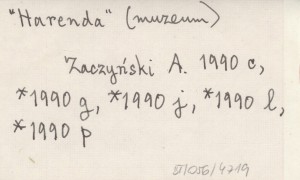 "Harenda" (muzeum)
Zaczyński A. 1990 c,
*1990 g, *1990 j, *1990 l,
*1990 p
ST/056/4719